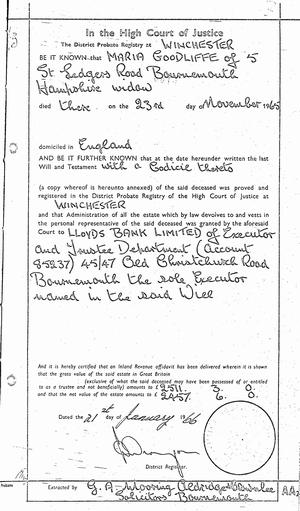 In the High Court of Justice
The District Probate Registry at WINCHESTER
BE IT KNOWN that MARIA GOODLIFFE of 5
St Ledgers Road Bournemouth
Hampshire widow
died there on the 23rd day of November 1965
domiciled in England
AND BE IT FURTHER KNOWN that at the date hereunder written the last
Will and Testament with a Codicil thereto
(a copy whereof is hereunto annexed) of the said deceased was proved and
registered in the District Probate Registry of the High Court of Justice at
WINCHESTER
and that Administration of all the estate which by law devolves to and vests in
the personal representative of the said deceased was granted by the aforesaid
Court to LLOYDS BANK LIMITED of Executor
and Trustee Department (Account
85237) 45/47 Old Christchurch Road
Bournemouth the sole Executor
named in the said Will
And it is hereby certified that an Inland Revenue affidavit has been delivered wherein it is shown
that the gross value of the said estate in Great Britain
(exclusive of what the said deceased may have been possessed of or entitled
to as a trustee and not beneficially) amounts to £ 2511. 3. 0.
and that the net value of the estate amounts to £ 2457. 6. 0.
Dated the 21st day of January 1966
District Registrar.
Probate
Extracted by G. A. Mooring Aldridge &
Solicitors Bournemouth